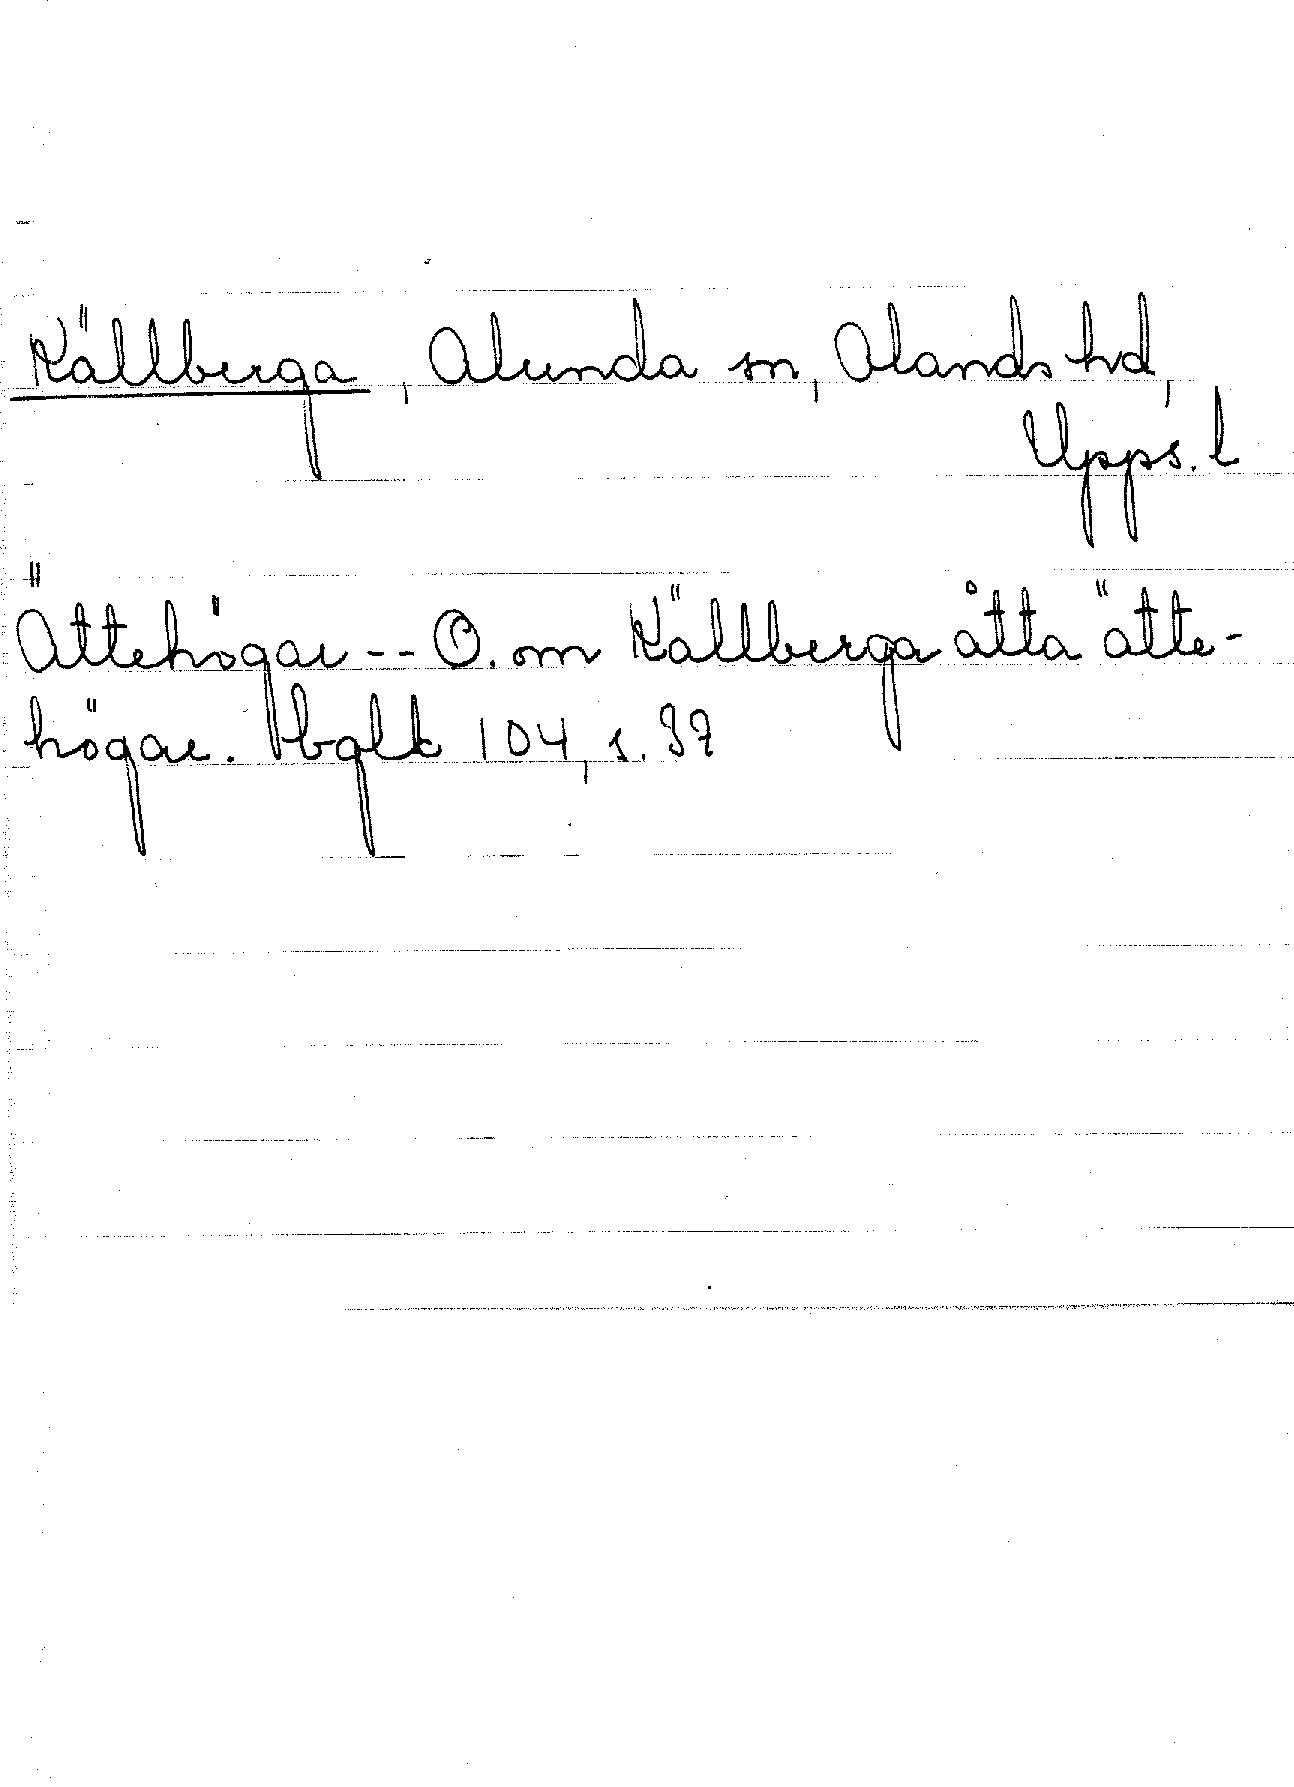 Källberga, Alunda sn, Olands hd,
Upps. l
Ättehögar -- O. om Källberga åtta ätte-
högar. Hbglk 104, s. 37